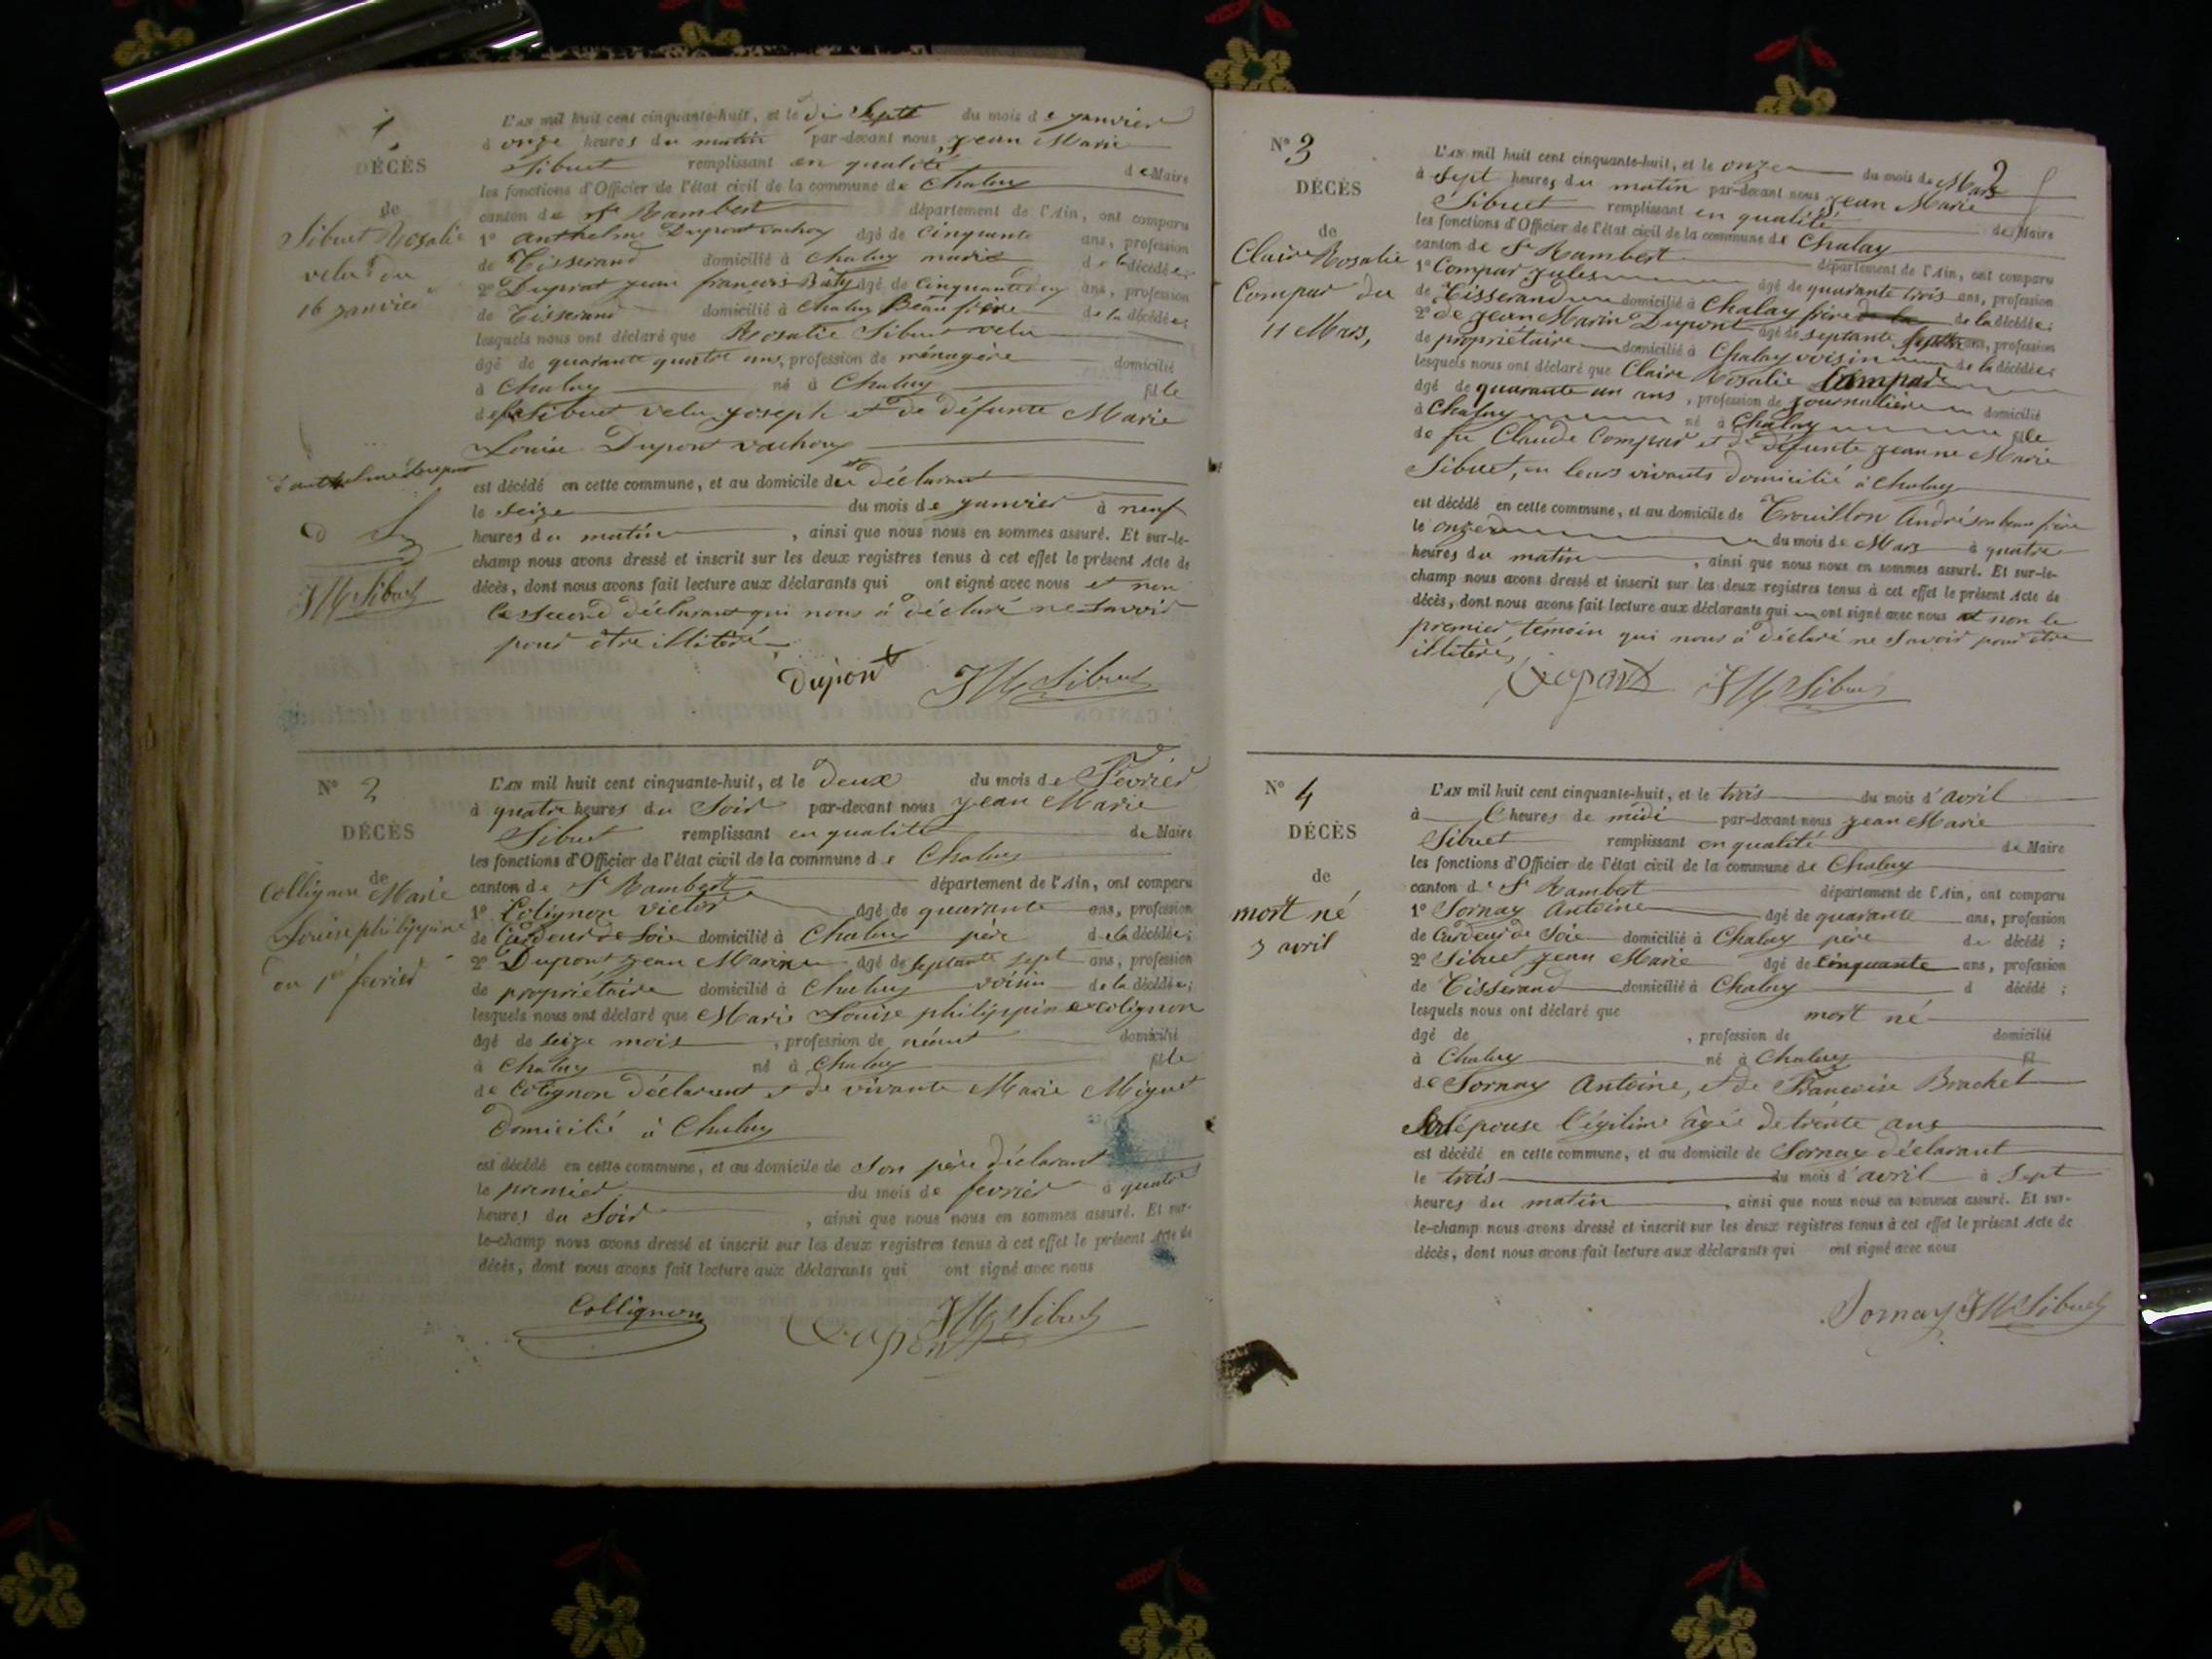 1
DÉCÈS
de
Sibuet Rosalie
velu du
16 janvier
d'anthelme dupont
JM Sibuet
L'AN mil huit cent cinquante-huit, et le dix Sept du mois de janvier
à onze heures du matin par-devant nous jean Marie
Sibuet remplissant en qualité de Maire
les fonctions d'Officier de l'état civil de la commune de Chaley
canton de St Rambert département de l'Ain, ont comparu
1° anthelme Dupont vachon âgé de Cinquante ans, profession
de Tisserand domicilié à Chaley mari de la décédée;
2° Duprat jean françois Baty âgé de Cinquante six ans, profession
de Tisserand domicilié à Chaley Beaufrère de la décédée;
lesquels nous ont déclaré que Rosalie Sibuet velu
âgé de quarante quatre ans, profession de ménagère domicilié
à Chaley né à Chaley fille
de fe Sibuet velu joseph et de défunte Marie
Louise Dupont vachon
est décédé en cette commune, et au domicile du déclarant
le seize du mois de janvier à neuf
heures du matin, ainsi que nous nous en sommes assuré. Et sur-le-
champ nous avons dressé et inscrit sur les deux registres tenus à cet effet le présent Acte de
décès, dont nous avons fait lecture aux déclarants qui ont signé avec nous et non
le second déclarant qui nous a déclaré ne savoir
pour être illitéré
Dupont JM Sibuet
N° 2
DÉCÈS
de
Collignon Marie
Louise philippine
du 1er février
L'AN mil huit cent cinquante-huit, et le deux du mois de Février
à quatre heures du Soir par-devant nous jean Marie
Sibuet remplissant en qualité de Maire
les fonctions d'Officier de l'état civil de la commune de Chaley
canton de St Rambert département de l'Ain, ont comparu
1° Colignon Victor âgé de quarante ans, profession
de Cardeur de Soie domicilié à Chaley père de la décédée;
2° Dupont jean Marin âgé de septante sept ans, profession
de propriétaire domicilié à Chaley voisin de la décédée;
lesquels nous ont déclaré que Marie Louise philippine colignon
âgé de seize mois, profession de néant domicilié
à Chaley né à Chaley fille
de Colignon déclarant et de vivante Marie Miguet
Domicilié à Chaley
est décédé en cette commune, et au domicile de son père déclarant
le premier du mois de fevrier à quatre
heures du Soir, ainsi que nous nous en sommes assuré. Et sur-
le-champ nous avons dressé et inscrit sur les deux registres tenus à cet effet le présent Acte de
décès, dont nous avons fait lecture aux déclarants qui ont signé avec nous
Collignon Dupont JM Sibuet
2
N° 3
DÉCÈS
de
Claire Rosalie
Compar du
11 Mars,
L'AN mil huit cent cinquante-huit, et le onze du mois de Mars
à sept heures du matin par-devant nous jean Marie
Sibuet remplissant en qualité de Maire
les fonctions d'Officier de l'état civil de la commune de Chaley
canton de St Rambert département de l'Ain, ont comparu
1° Compar jules âgé de quarante trois ans, profession
de Tisserand domicilié à Chaley frère de la de la décédée;
2° de jean Marin Dupont âgé de septante sept ans, profession
de propriétaire domicilié à Chaley voisin de la décédée;
lesquels nous ont déclaré que Claire Rosalie Compar
âgé de quarante un ans, profession de journalière domicilié
à Chaley né à Chaley fille
de fu Claude Compar et de défunte jeanne Marie
Sibuet, en leurs vivants domicilié à Chaley
est décédé en cette commune, et au domicile de Trouillon André son beau frère
le onze du mois de Mars à quatre
heures du matin, ainsi que nous nous en sommes assuré. Et sur-le-
champ nous avons dressé et inscrit sur les deux registres tenus à cet effet le présent Acte de
décès, dont nous avons fait lecture aux déclarants qui ont signé avec nous et non le
premier, témoin qui nous a déclaré ne savoir pour être
illitéré,
Dupont JM Sibuet
N° 4
DÉCÈS
de
mort né
3 avril
L'AN mil huit cent cinquante-huit, et le trois du mois d'avril
à heures de midi par-devant nous jean Marie
Sibuet remplissant en qualité de Maire
les fonctions d'Officier de l'état civil de la commune de Chaley
canton de St Rambert département de l'Ain, ont comparu
1° Sornay Antoine âgé de quarante ans, profession
de Cardeur de Soie domicilié à Chaley père de décédé ;
2° Sibuet jean Marie âgé de Cinquante ans, profession
de Tisserand domicilié à Chaley d décédé ;
lesquels nous ont déclaré que mort né
âgé de , profession de domicilié
à Chaley né à Chaley fil
de Sornay Antoine, et de Françoise Brachet
Son épouse légitime âgée de trente ans
est décédé en cette commune, et au domicile de Sornay déclarant
le trois du mois d'avril à Sept
heures du matin, ainsi que nous nous en sommes assuré. Et sur-
le-champ nous avons dressé et inscrit sur les deux registres tenus à cet effet le présent Acte de
décès, dont nous avons fait lecture aux déclarants qui ont signé avec nous
Sornay JM Sibuet